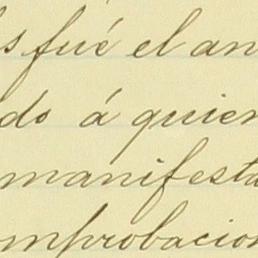 s fué el an
do á quien
manifesta
omprobacion